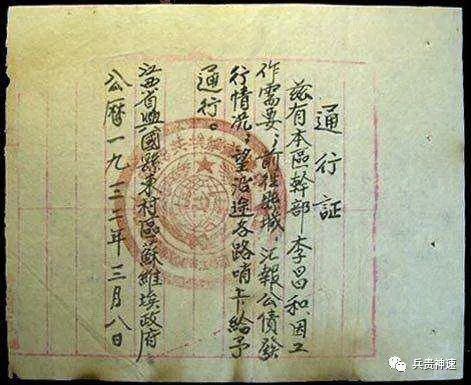 通行証
兹有本區幹部 李昌和因工
作需要，前往縣城，汇報公債發
行情况，望沿途各路哨卡給予
通行。
江西省興國縣東村區蘇維埃政府
公曆一九三二年三月八日
兵贵神速